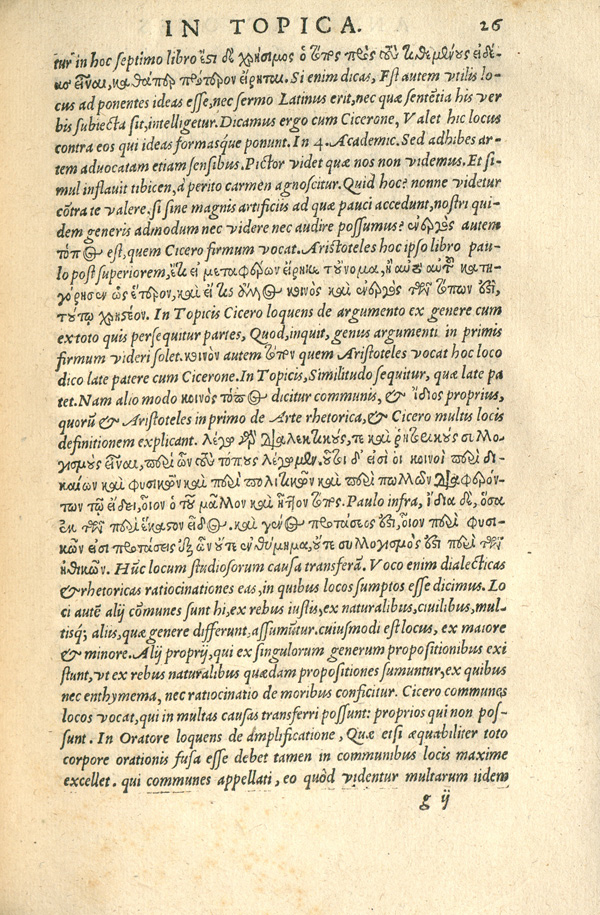 IN TOPICA. 26
tur in hoc septimo libro ἔστι δὲ χρήσιμος ὁ τόπος πρὸς τοὺς τιθεμένους εἰδέ-
ας εἶναι, καθάπερ πρότερον εἴρηται. Si enim dicas, Est autem vtilis lo-
cus ad ponentes ideas esse, nec sermo Latinus erit, nec quæ sentẽtia his ver
bis subiecta sit, intelligetur. Dicamus ergo cum Cicerone, Valet hic locus
contra eos qui ideas formasque ponunt. In 4. Academic. Sed adhibes ar-
tem aduocatam etiam sensibus. Pictor videt quæ nos non videmus. Et si-
mul inflauit tibicen, à perito carmen agnoscitur. Quid hoc? nonne videtur
cõtra te valere. si sine magnis artificiis ad quæ pauci accedunt, nostri qui-
dem generis admodum nec videre nec audire possumus? ἐνεργὸς autem
τόπος est, quem Cicero firmum vocat. Aristoteles hoc ipso libro pau-
lo post superiorem, ἔτι εἰ μεταφέρων εἴρηκε τοὔνομα, ἢ αὐτὸ αὑτοῦ κατη-
γόρησεν ὡς ἕτερον, καὶ εἴ τις ἄλλος κοινὸς καὶ ἐνεργὸς τῶν τόπων ἐστὶ,
τούτῳ χρηστέον. In Topicis Cicero loquens de argumento ex genere cum
ex toto quis persequitur partes, Quod, inquit, genus argumenti in primis
firmum videri solet. κοινὸν autem τόπον quem Aristoteles vocat hoc loco
dico late patere cum Cicerone. In Topicis, Similitudo sequitur, quæ late pa
tet. Nam alio modo κοινὸς τόπος dicitur communis, & ἴδιος proprius,
quorũ & Aristoteles in primo de Arte rhetorica, & Cicero multis locis
definitionem explicant. λέγω γὰρ διαλεκτικούς, τε καὶ ῥητορικοὺς συλλο-
γισμοὺς εἶναι, περὶ ὧν τοὺς τόπους λέγομεν. οὗτοι δ' εἰσὶ οἱ κοινοὶ περὶ δι-
καίων καὶ φυσικῶν καὶ περὶ πολιτικῶν καὶ περὶ πολλῶν διαφερόν-
των τῷ εἴδει, οἷον ὁ τοῦ μᾶλλον καὶ ἧττον τόπος. Paulo infra, ἴδια δὲ, ὅσα
ἐκ τῶν περὶ ἕκαστον εἶδος καὶ γένος προτάσεών ἐστι, οἷον περὶ φυσι-
κῶν εἰσι προτάσεις ἐξ ὧν οὔτε ἐνθύμημα, οὔτε συλλογισμός ἐστι περὶ τῶν
ἠθικῶν. Hũc locum studiosorum causa transferã. Voco enim dialecticas
& rhetoricas ratiocinationes eas, in quibus locos sumptos esse dicimus. Lo
ci autẽ alij cõmunes sunt hi, ex rebus iustis, ex naturalibus, ciuilibus, mul-
tisq; aliis, quæ genere differunt, assumũtur. cuiusmodi est locus, ex maiore
& minore. Alij proprij, qui ex singulorum generum propositionibus exi
stunt, vt ex rebus naturalibus quædam propositiones sumuntur, ex quibus
nec enthymema, nec ratiocinatio de moribus conficitur. Cicero communes
locos vocat, qui in multas causas transferri possunt: proprios qui non pos-
sunt. In Oratore loquens de amplificatione, Quæ etsi æquabiliter toto
corpore orationis fusa esse debet tamen in communibus locis maxime
excellet. qui communes appellati, eo quòd videntur multarum iidem
g ij